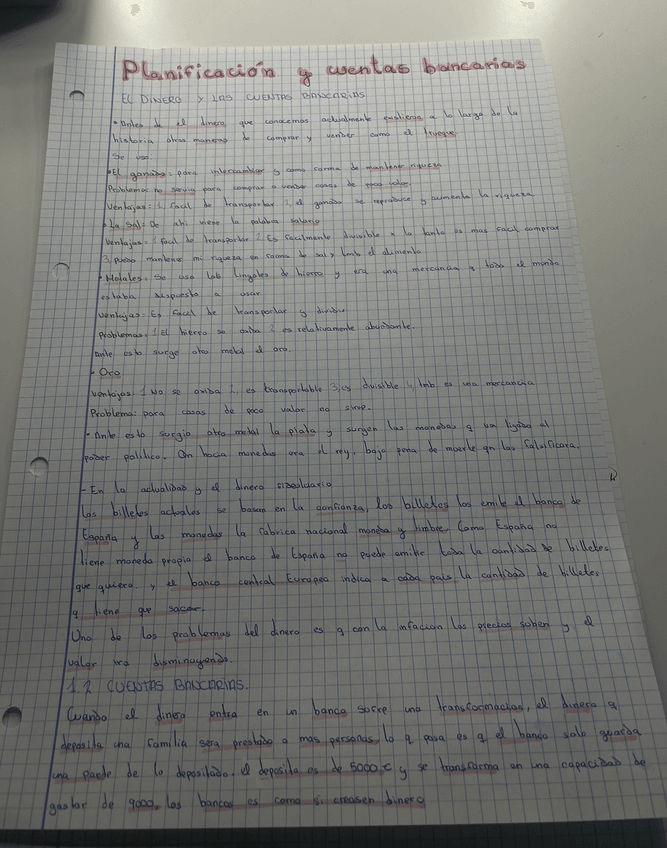 Planificación y cuentas bancarias
EL DINERO Y LAS CUENTAS BANCARIAS
• Antes de el dinero que conocemos actualmente existieron a lo largo de la
historia otras maneras de comprar y vender como el trueque.
Se uso:
• El ganado: para intercambiar y como forma de mantener riqueza
Problema: no servia para comprar o vender cosas de poco valor.
Ventajas: 1. facil de transportar 2. el ganado se reproduce y aumenta la riqueza
• La sal: De ahi viene la palabra salario
Ventajas: 1 facil de transportar 2 Es facilmente divisible x lo tanto es mas facil comprar
3. puedo mantener mi riqueza en forma de sal y tmb el alimento
• Metales. Se uso los lingotes de hierro y era una mercancia q todo el mundo
estaba dispuesto a usar
Ventajas: Es facil de transportar y dividir
Problemas: 1 El hierro se oxida 2 es relativamente abundante.
Ante esto surge otro metal el oro.
- Oro
Ventajas: 1 No se oxida 2. es transportable 3. es divisible 4. tmb es una mercancia
Problema: para cosas de poco valor no sirve.
• Ante esto surgio otro metal la plata y surgen las monedas q va ligado al
poder politico. Qn hacia monedas era el rey, bajo pena de muerte qn las falsificara.
- En la actualidad y el dinero fiduciario
Los billetes actuales se basan en la confianza, los billetes los emite el banco de
España y las monedas la fabrica nacional moneda y timbre. Como España no
tiene moneda propia el banco de España no puede emitir toda la cantidad de billetes
que quiera, y el banco central Europeo indica a cada pais la cantidad de billetes
q tiene que sacar.
Uno de los problemas del dinero es q con la infacion los precios suben y el
valor va disminuyendo.
1.2 CUENTAS BANCARIAS.
Cuando el dinero entra en un banco sufre una transformacion, el dinero q
deposita una familia sera prestado a mas personas, lo q pasa es q el banco solo guarda
una parte de lo depositado. el deposito es de 5000€ y se transforma en una capacidad de
gastar de 9000, los bancos es como si creasen dinero